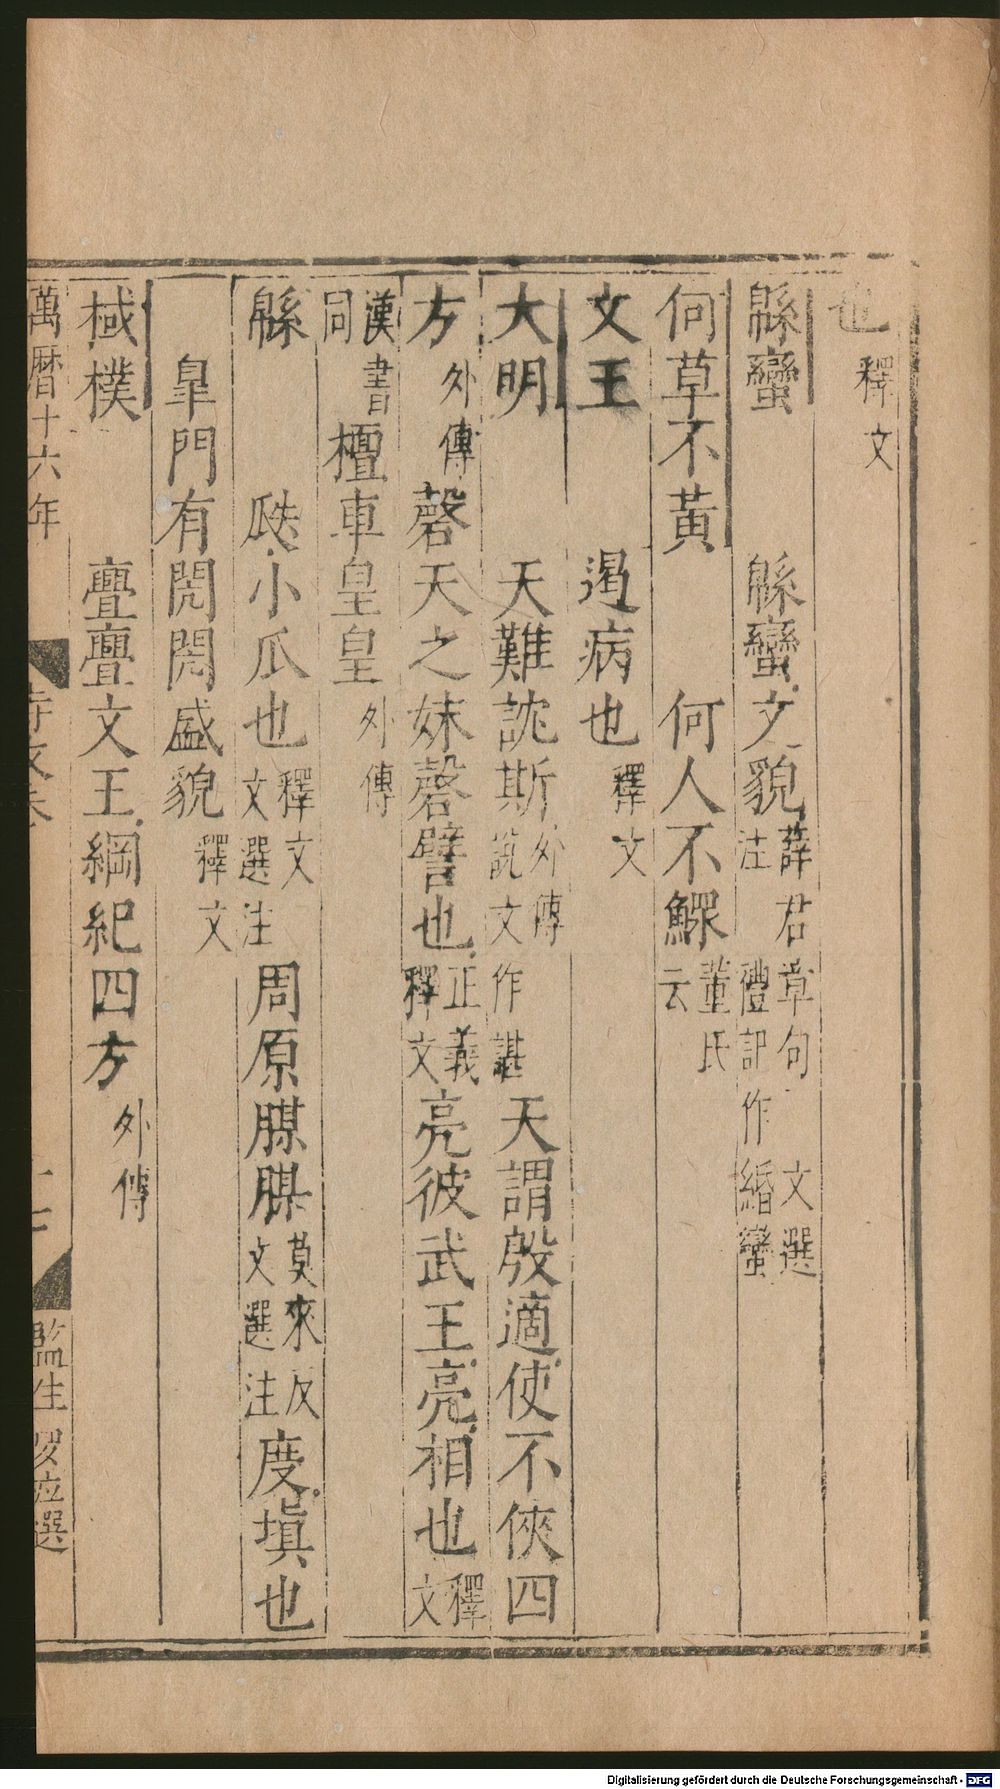 也釋文
緜蠻 緜蠻文貌薛君章句 文選注 禮記作緡蠻
何草不黃 何人不鰥董氏云
文王 遏病也釋文
大明 天難訦斯外傳 說文作諶 天謂殷適使不俠四
方外傳 磬天之妹磬譬也正義 釋文 亮彼武王亮相也釋文
漢書同 檀車皇皇外傳
緜 瓞小瓜也釋文 文選注 周原腜腜莫來反 文選注 度塡也
皐門有閌閌盛貌釋文
棫樸 亹亹文王綱紀四方外傳
萬曆十六年 詩攷 監生
Digitalisierung gefördert durch die Deutsche Forschungsgemeinschaft - DFG